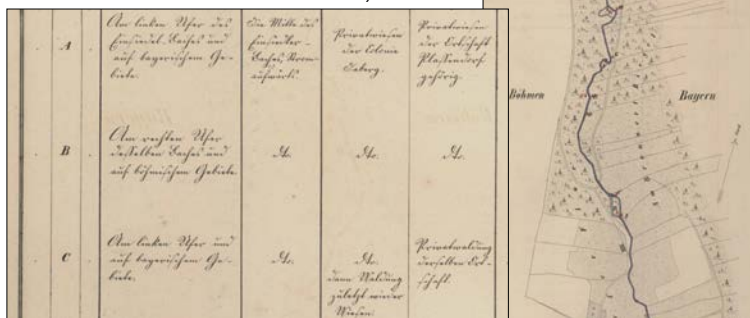 A
Am linken Ufer des
Einsiedel-Baches und
auf bayerischem Ge-
biete.
die Mitte des
Einsiedler-
Baches, Strom-
aufwärts.
Privatwiesen
der Colonie
Privatwiesen
der Ortschaft
gehörig.
B
Am rechten Ufer
desselben Baches und
auf böhmischem Gebiete.
dto.
dto.
dto.
C
Am linken Ufer und
auf bayerischem Ge-
biete.
dto.
dto.
dann Waldung
zuletzt wieder
Wiesen.
Privatwaldung
derselben Ort-
schaft.
Böhmen
Bayern